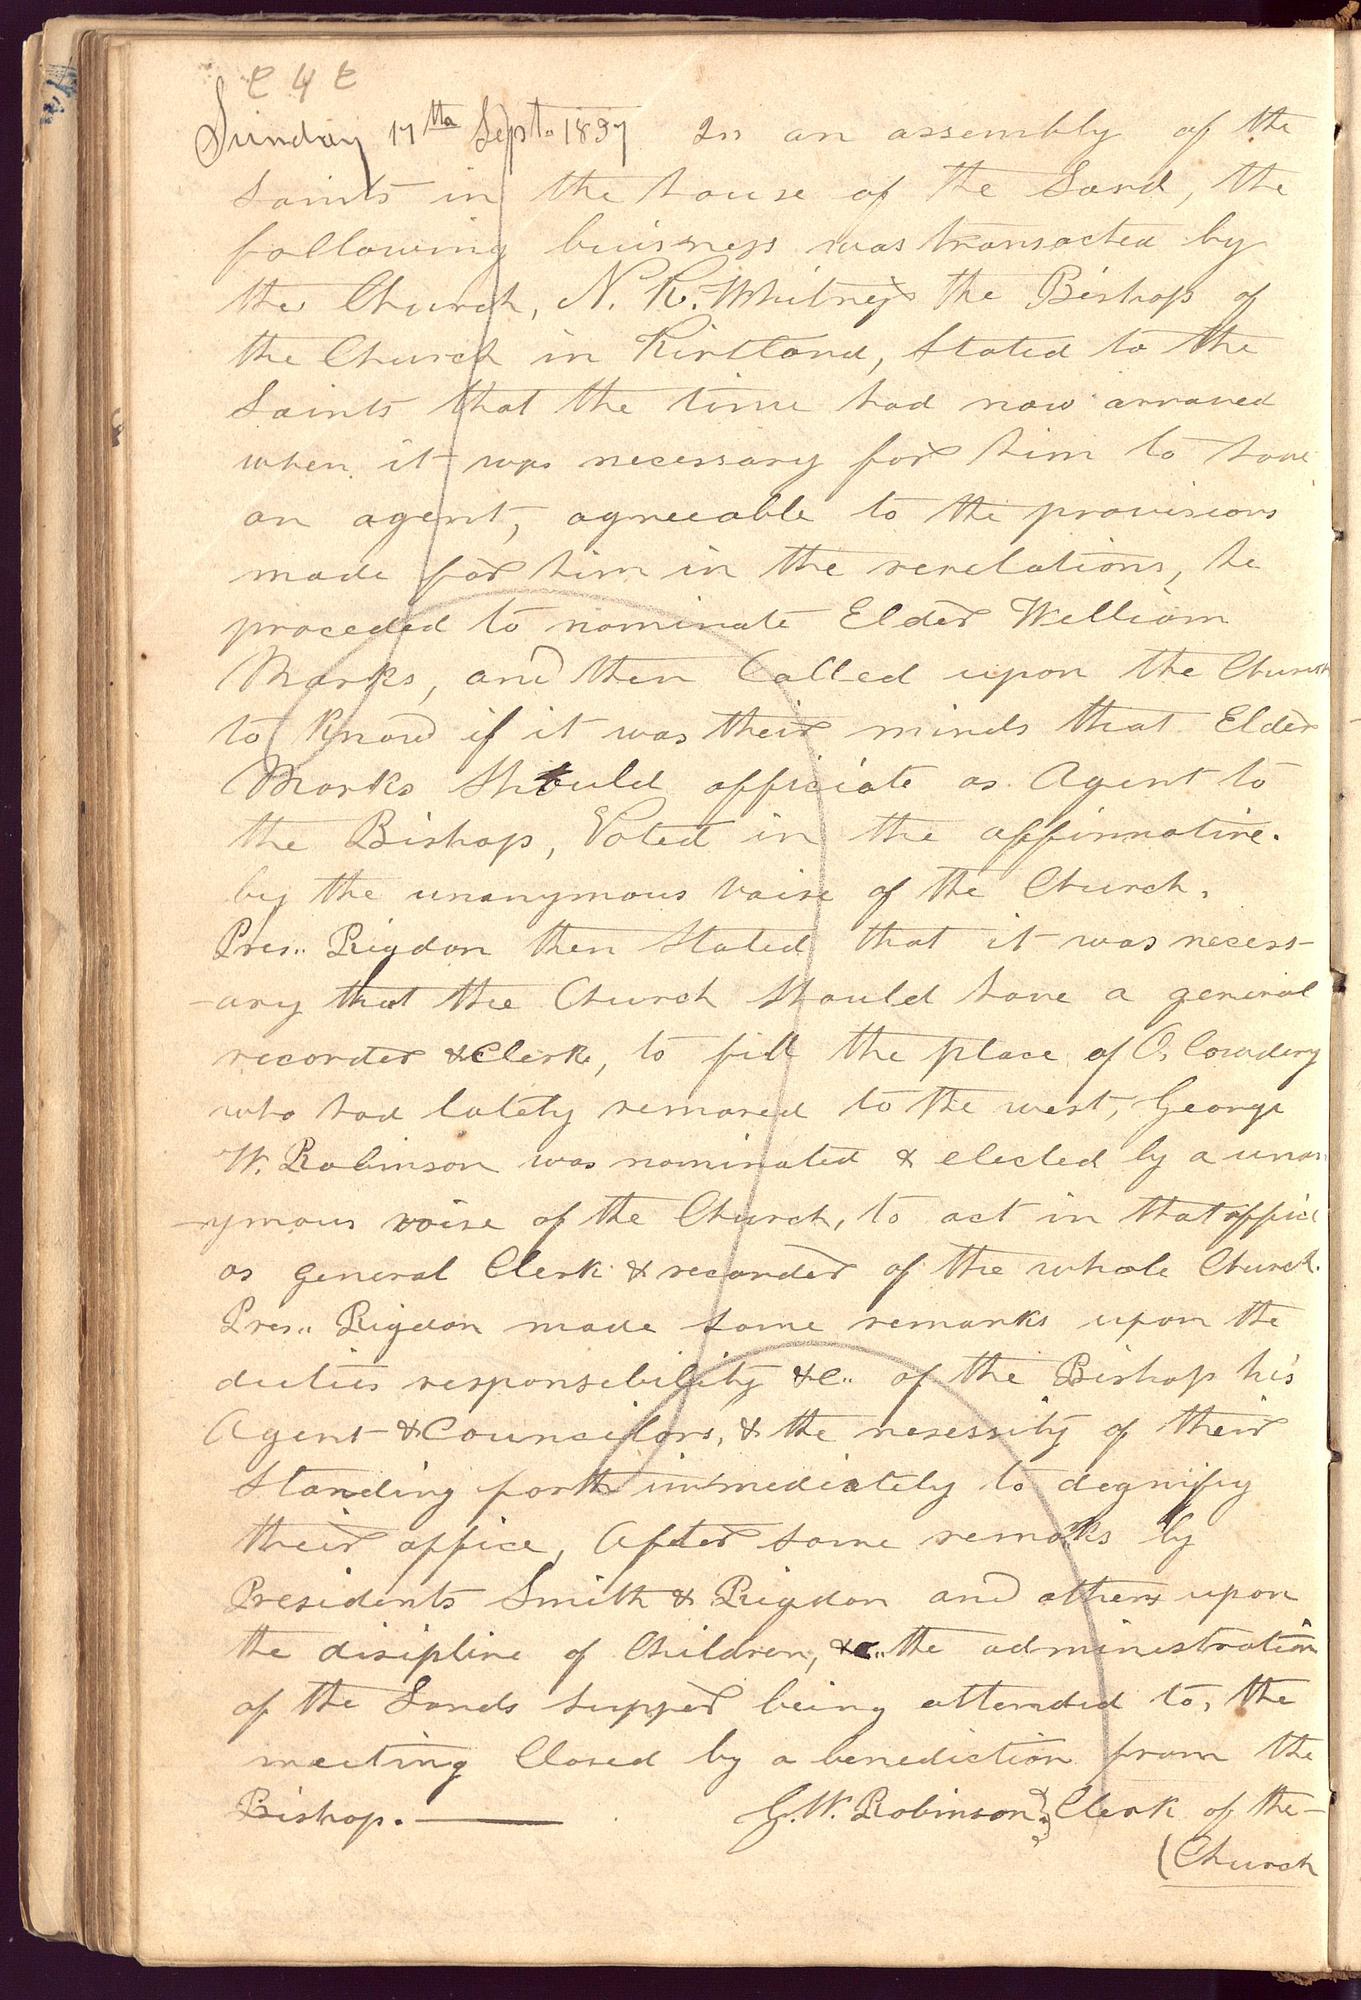 Sunday 17th Sept. 1837 In an assembly of the
Saints in the house of the Lord, the
following buisness was transacted by
the Church, N. K. Whitney the Bishop of
the Church in Kirtland, stated to the
Saints that the time had now arraved
when it was necessary for him to have
an agent, agreeable to the provisions
made for him in the revelations, he
proceded to nominate Elder William
Marks, and then Called upon the Church
to know if it was their minds that Elder
Marks should officiate as Agent to
the Bishop, Voted in the affirmative.
by the unanymous voice of the Church.
Pres.. Rigdon then stated that it was necess-
-ary that the Church should have a general
recorder & Clerk, to fill the place of O. Cowdery
who had lately removed to the west, George
W. Robinson was nominated & elected by a unan
-ymous voice of the Church, to act in that office
as general Clerk & recorder of the whole Church.
Pres.. Rigdon made some remarks upon the
duties responsibility &c.. of the Bishop his
Agent & Councilors, & the nesessity of their
standing forth immediately to degnify
their office, After some remarks by
Presidents Smith & Rigdon and others upon
the disipline of Children, &c.. the administration
of the Lords supper being attended to, the
meeting Closed by a benediction from the
Bishop. — G. W. Robinson Clerk of the-
(Church